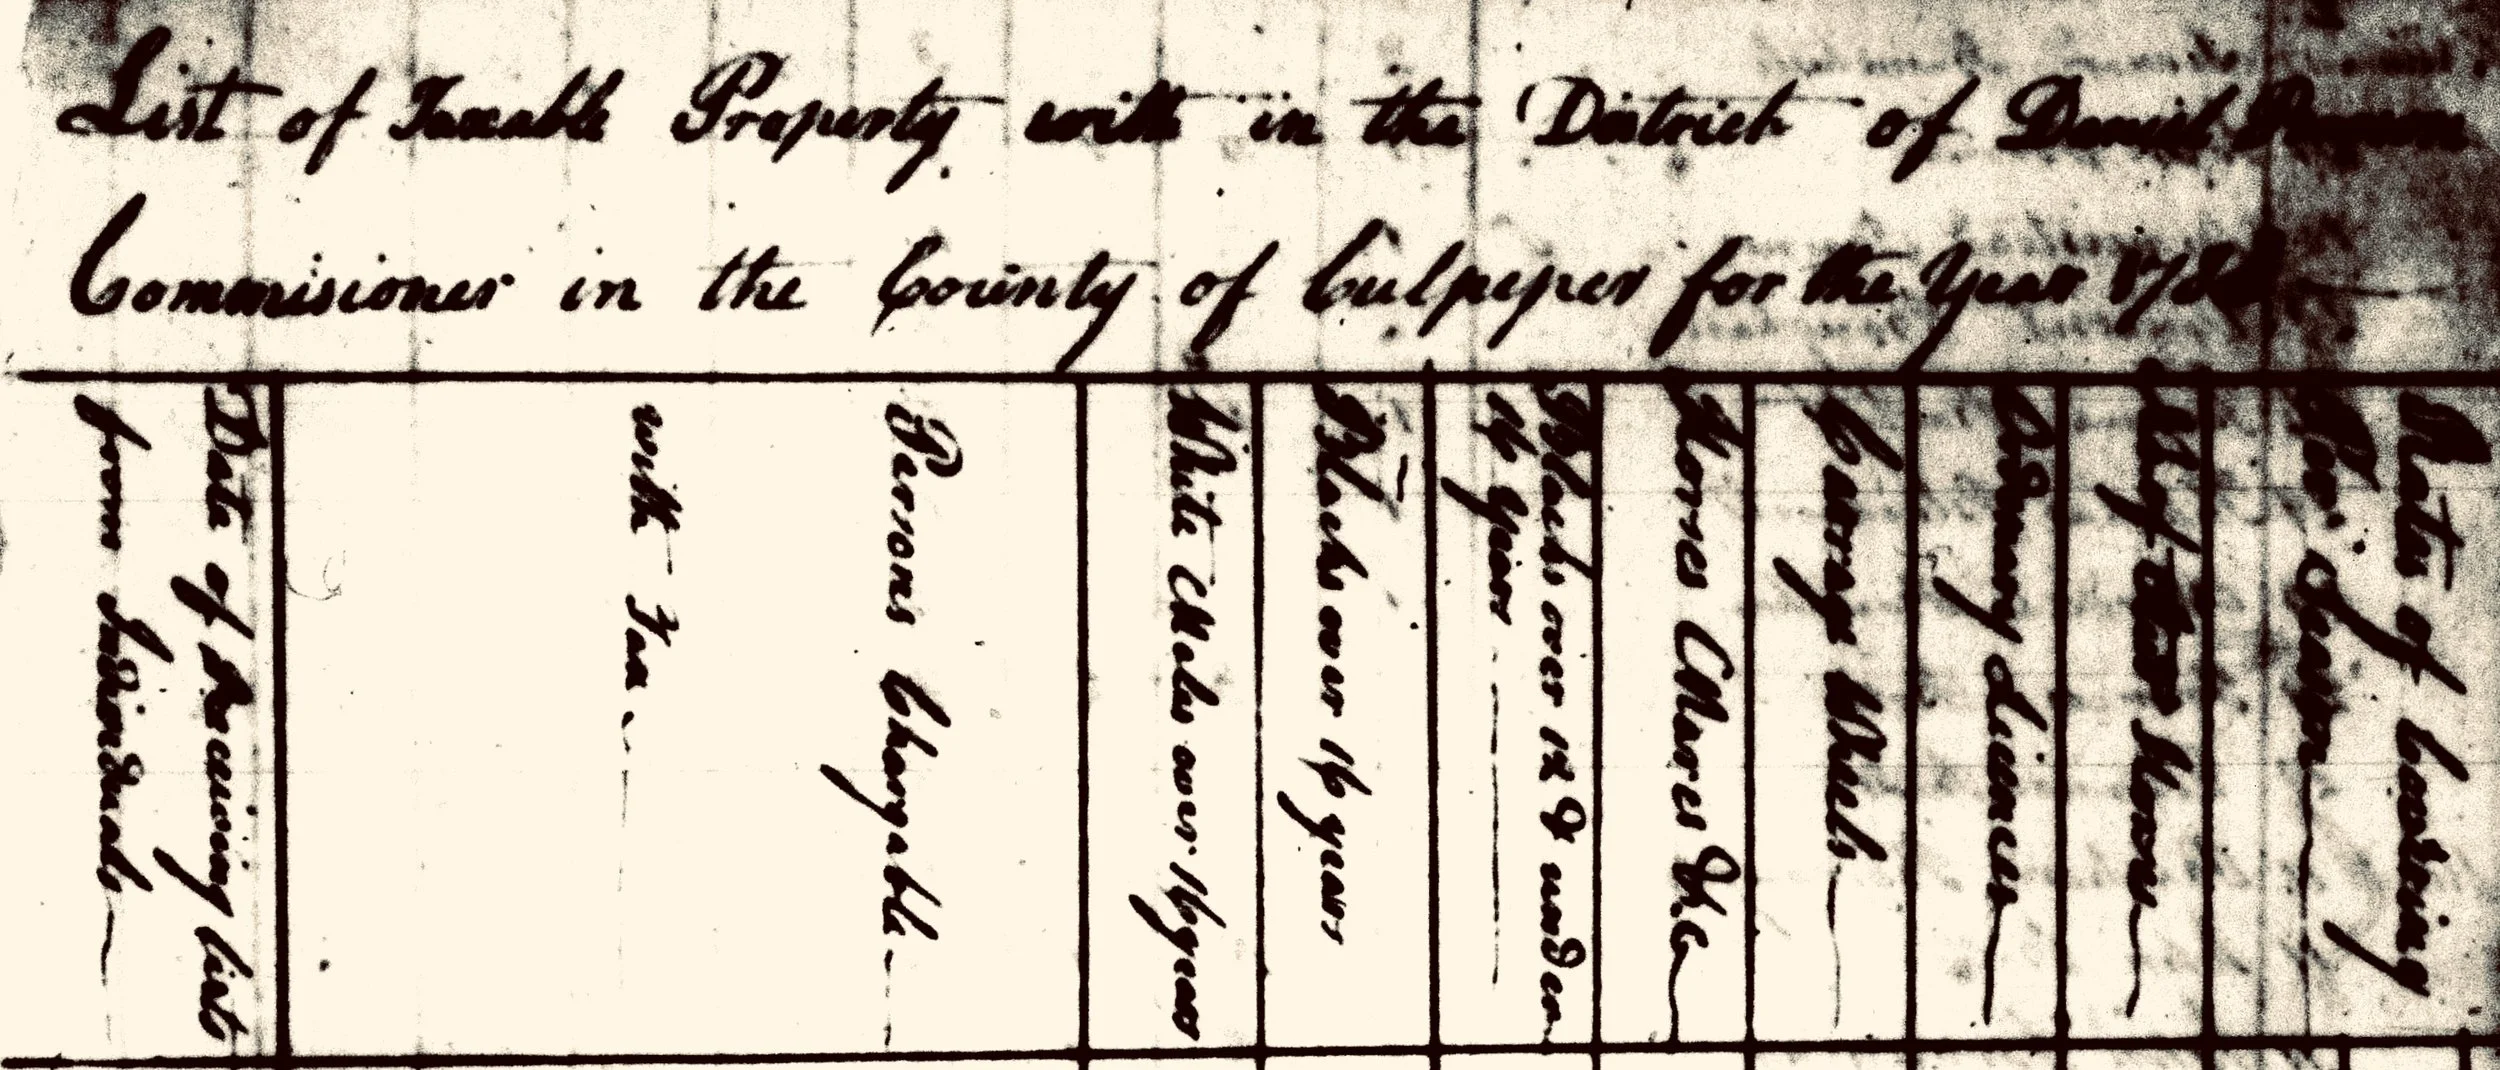 List of Taxable Property with in the District of Daniel
Commisioner in the County of Culpeper for the Year
Date of Receiving list
from Individuals
Persons Chargable
with Tax
White Males over 16 years
Blacks over 16 years
Blacks over 12 & under
16 Years
Horses Mares &c
Carrage Wheels
Ordinary Licences
No of Horses
Rates of Covering
Per Season